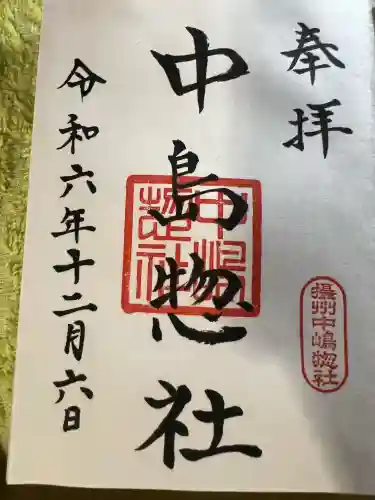 奉拝
摂州中嶋惣社
中島惣社
中嶋惣社
令和六年十二月六日